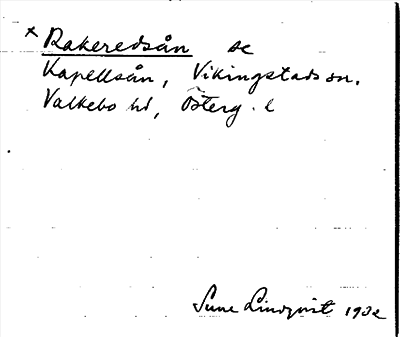 × Rakeredsån se
Kapellsån, Vikingstads sn.
Valkebo hd, Österg. l
Sune Lindqvist 1932